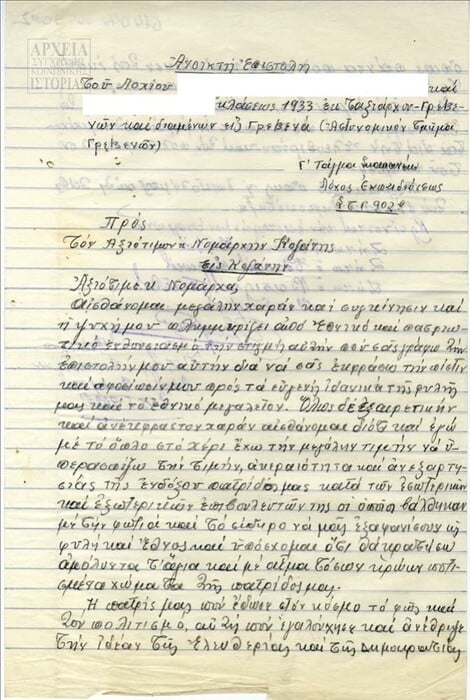 ΑΡΧΕΙΑ
ΣΥΓΧΡΟΝΗΣ
ΚΟΙΝΩΝΙΚΗΣ
ΙΣΤΟΡΙΑΣ
Ἀνοικτή Ἐπιστολή
Τοῦ Λοχίου καί
κλάσεως 1933 ἐκ Ταξιάρχου-Γρεβε-
νῶν καί διαμένων εἰς Γρεβενά (Ἀστυνομικόν Τμῆμα
Γρεβενῶν)
Γ' Τάγμα Σκαπανέων
Λόχος Ἐκπαιδεύσεως
Σ.Τ.Γ. 902α
Πρός
Τόν Ἀξιότιμον κ Νομάρχην Κοζάνης
Εἰς Κοζάνην
Ἀξιότιμε κ Νομάρχα,
Αἰσθάνομαι μεγάλην χαράν καί συγκίνησιν καί
ἡ ψυχή μου πλημμυρίζει ἀπό ἐθνικό καί πατριω-
τικό ἐνθουσιασμό τήν στιγμή αὐτήν πού σᾶς γράφω τήν
ἐπιστολήν μου αὐτήν διά νά σᾶς ἐκφράσω τήν πίστιν
καί ἀφοσίωσίν μου πρός τά εὐγενῆ ἰδανικά τῆς φυλῆς
μας καί τό ἐθνικό μεγαλεῖον. Ὅλως δέ ἐξαιρετικήν
καί ἀνέκφραστον χαράν αἰσθάνομαι διότι καί ἐγώ
μέ τό ὅπλο στό χέρι ἔχω τήν μεγάλην τιμήν νά ὑ-
περασπίζω τήν τιμήν, ἀκεραιότητα καί ἀνεξαρτη-
σίας τῆς ἐνδόξου πατρίδος μας κατά τῶν ἐσωτερικῶν
καί ἐξωτερικῶν ἐπιβουλευτῶν της οἱ ὁποῖοι βάλθηκαν
μέ τήν φωτιά καί τό σίδηρο νά μᾶς ἐξαφανίσουν ὡς
φυλή καί ἔθνος καί ὑπόσχομαι ὅτι θά κρατήσω
ἀμόλυντα τ' ἅγια καί μέ αἷμα τόσων ἡρώων ποτι-
σμένα χώματα τῆς πατρίδος μας.
Ἡ πατρίς μας πού ἔδωσε στόν κόσμο τό φῶς καί
τόν πολιτισμό, αὐτή πού ἐγαλούχησε καί ἀνέθρεψε
τήν ἰδέαν τῆς Ἐλευθερίας καί τῆς Δημοκρατίας